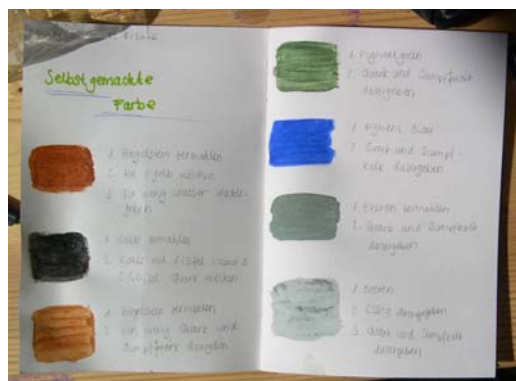 Selbstgemachte
Farbe
1. Ziegelstein zermahlen
2. mit Eigelb mischen
3. Ein wenig Wasser dazu-
geben
1. Kohle zermahlen
2. Kohle mit 1 Löffel
2 Löffel Quark mischen
1. Ziegelstein zermahlen
2. ein wenig Quark und
Sumpfkalk dazugeben
1. Pigmentgrün
2. Quark und Sumpfkalk
dazugeben
1. Pigment Blau
2. Quark und Sumpf-
kalk dazugeben
1. Beeren zermahlen
2. Quark und Sumpfkalk
dazugeben
1. Beeren
2. Essig dazugegeben
3. Quark und Sumpfkalk
dazugeben